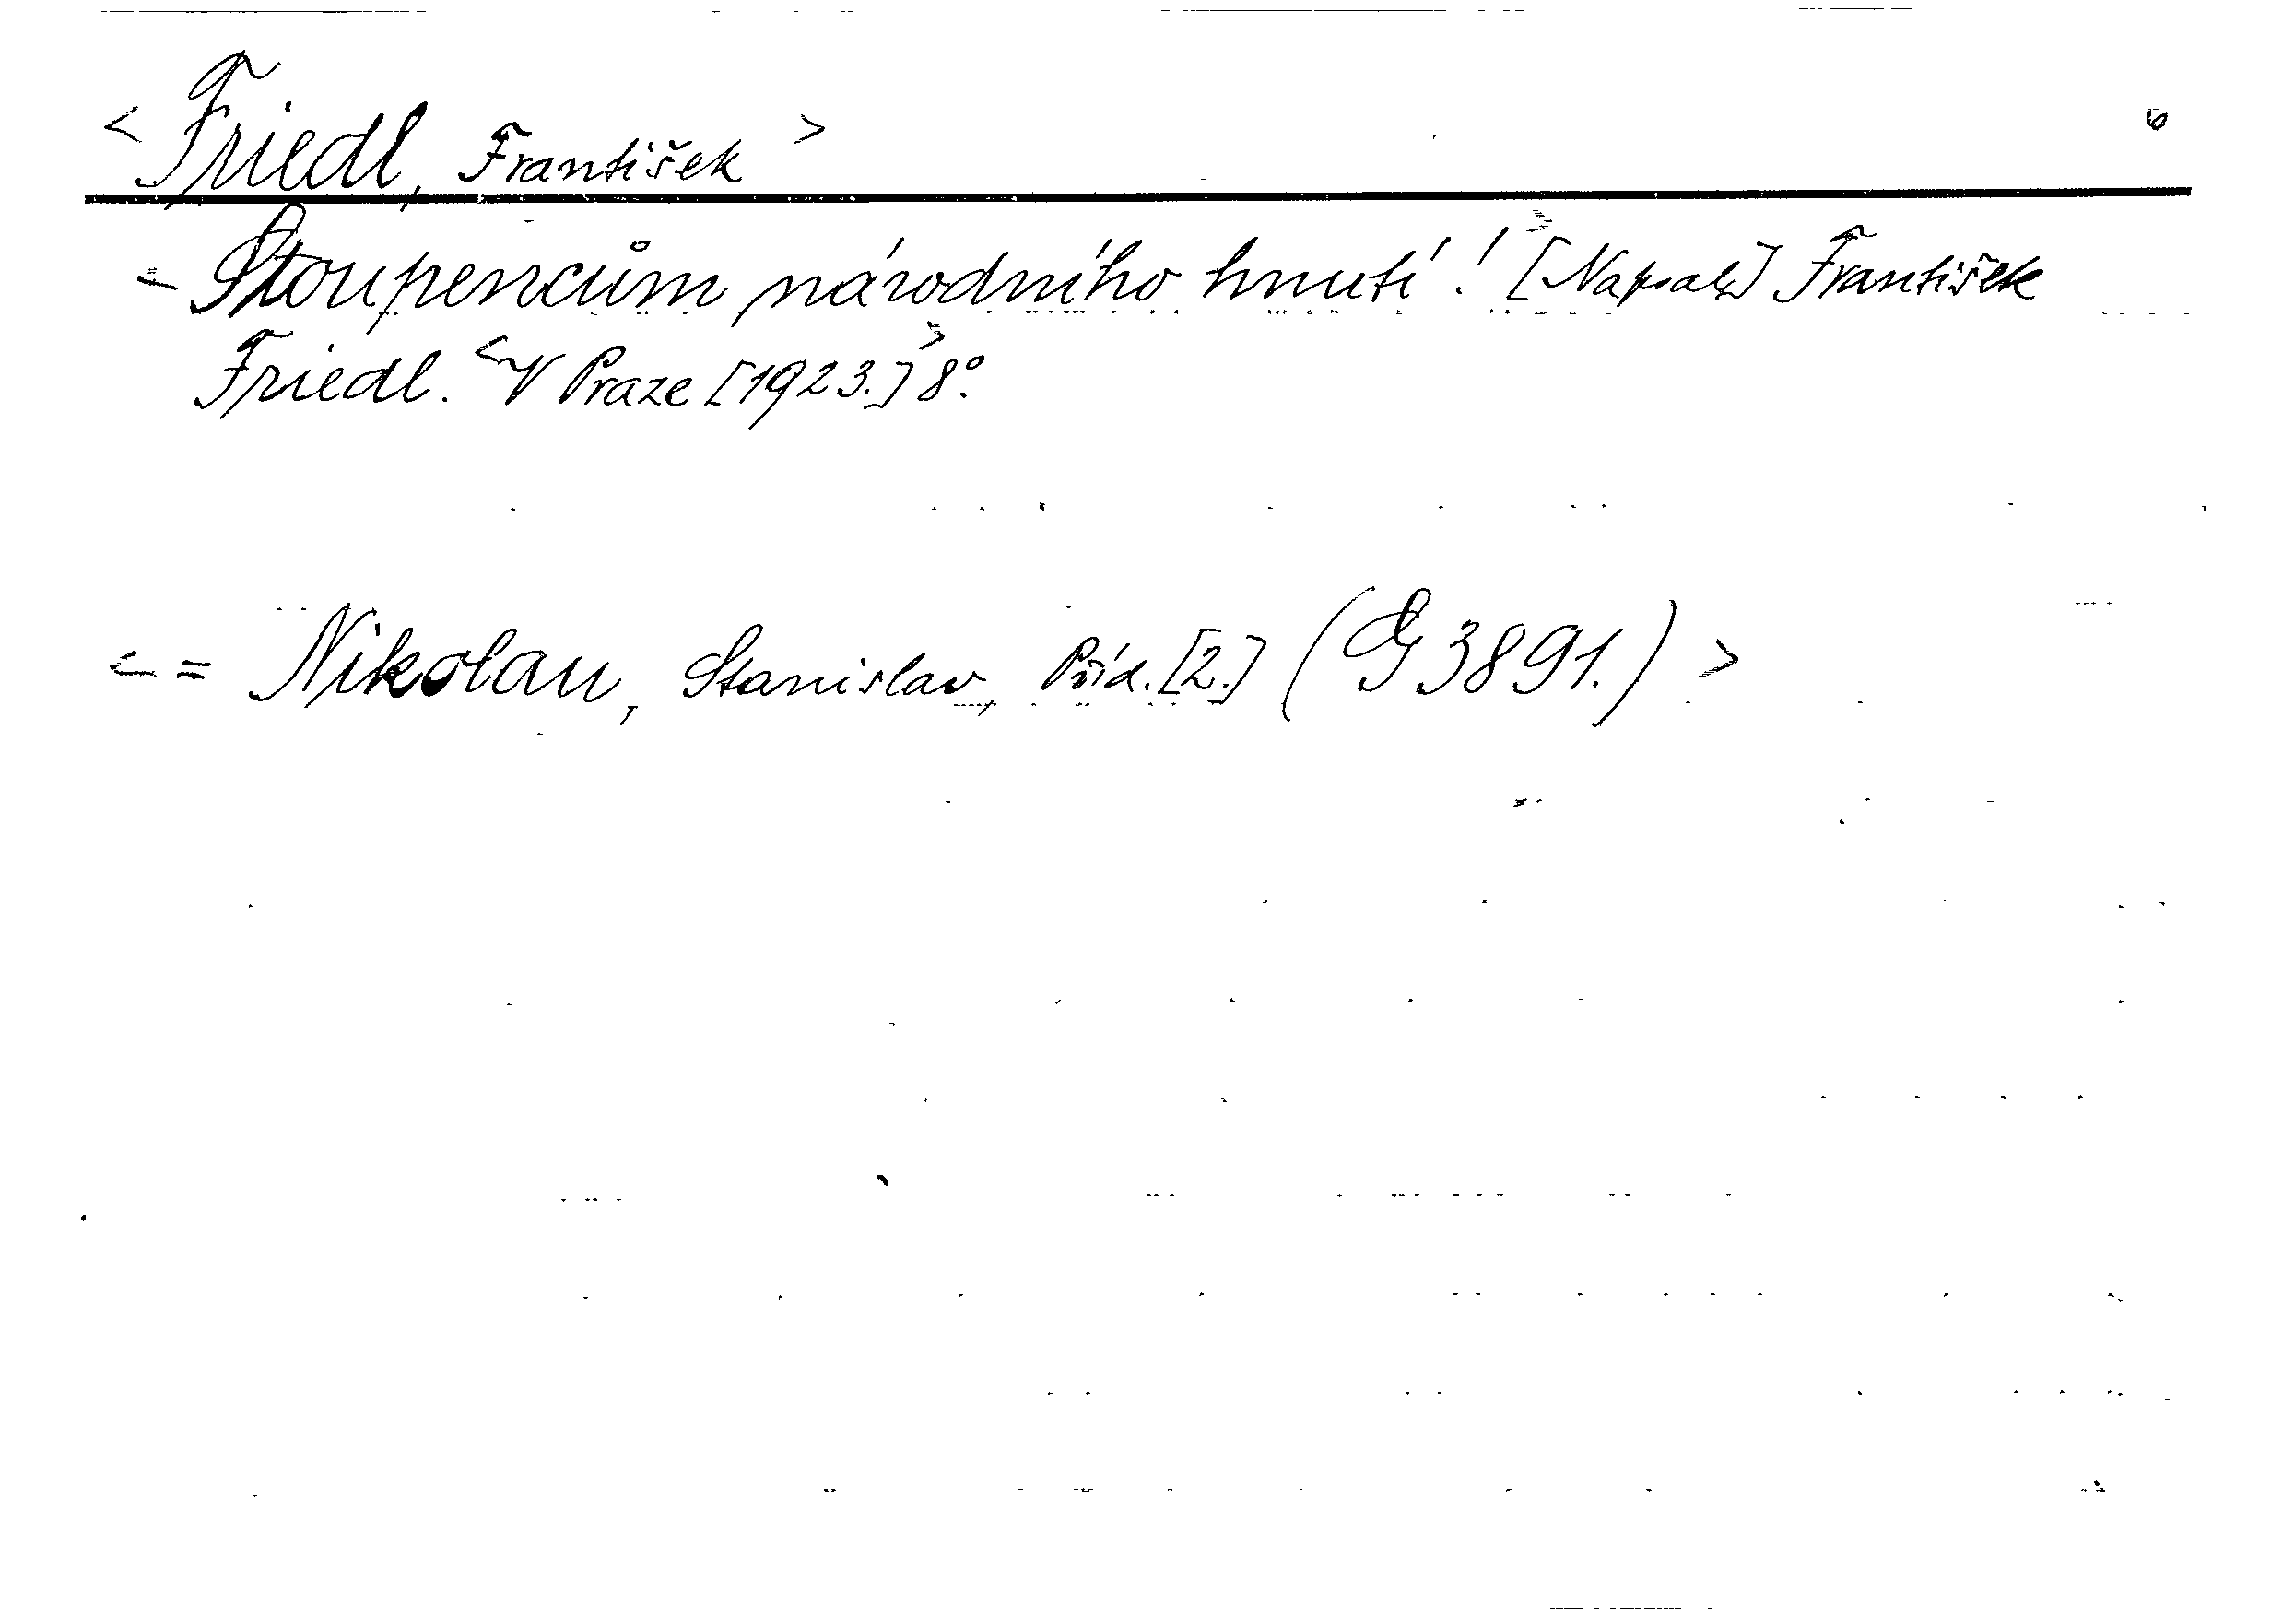 < Friedl, František > 6
< Stoupencům národního hnutí! > [Napsal] František
Friedl. < V Praze [1923.] > 8°.
< = Nikolau, Stanislav, Příd. [2.] (G 3891.) >